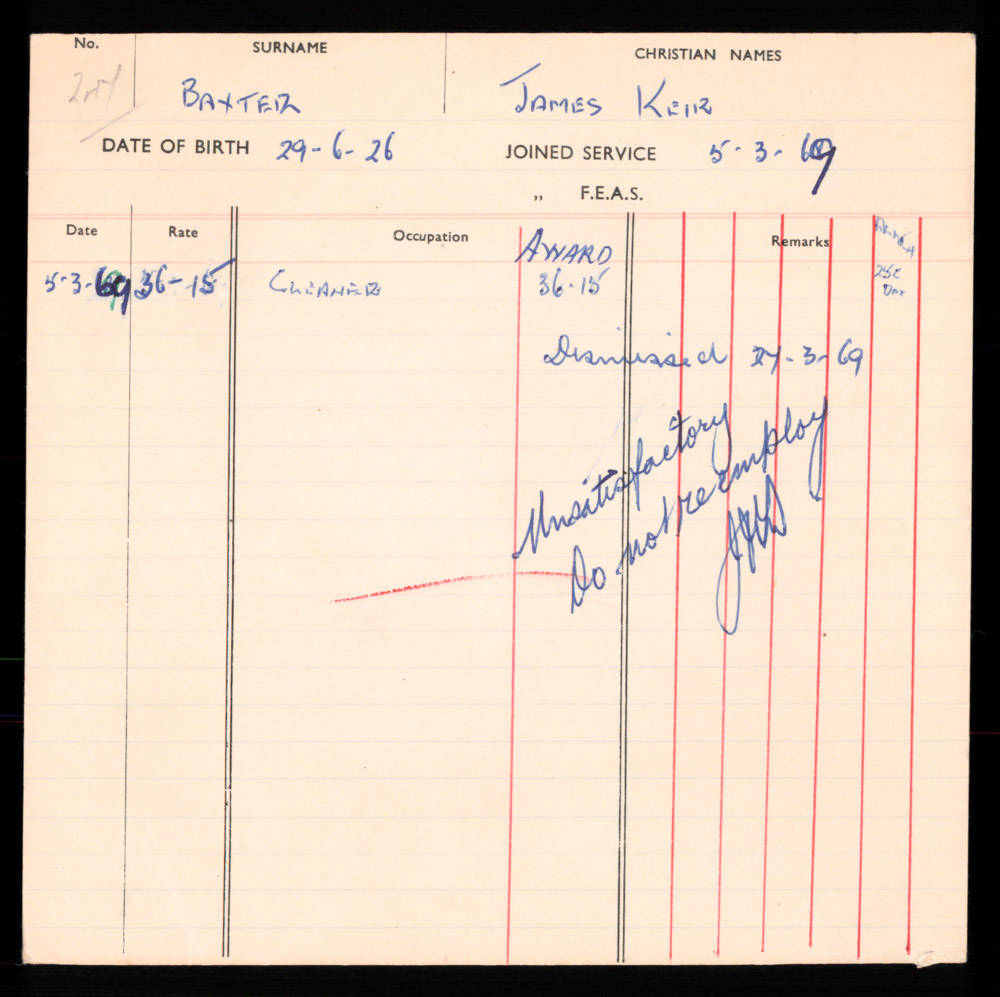 No. SURNAME CHRISTIAN NAMES
BAXTER JAMES KEIR
DATE OF BIRTH 29-6-26 JOINED SERVICE 5-3-69
„ F.E.A.S.
Date Rate Occupation AWARD Remarks
5-3-69 36-15 CLEANER 36-15 25c
Dismissed 27-3-69
Unsatisfactory
Do not reemploy